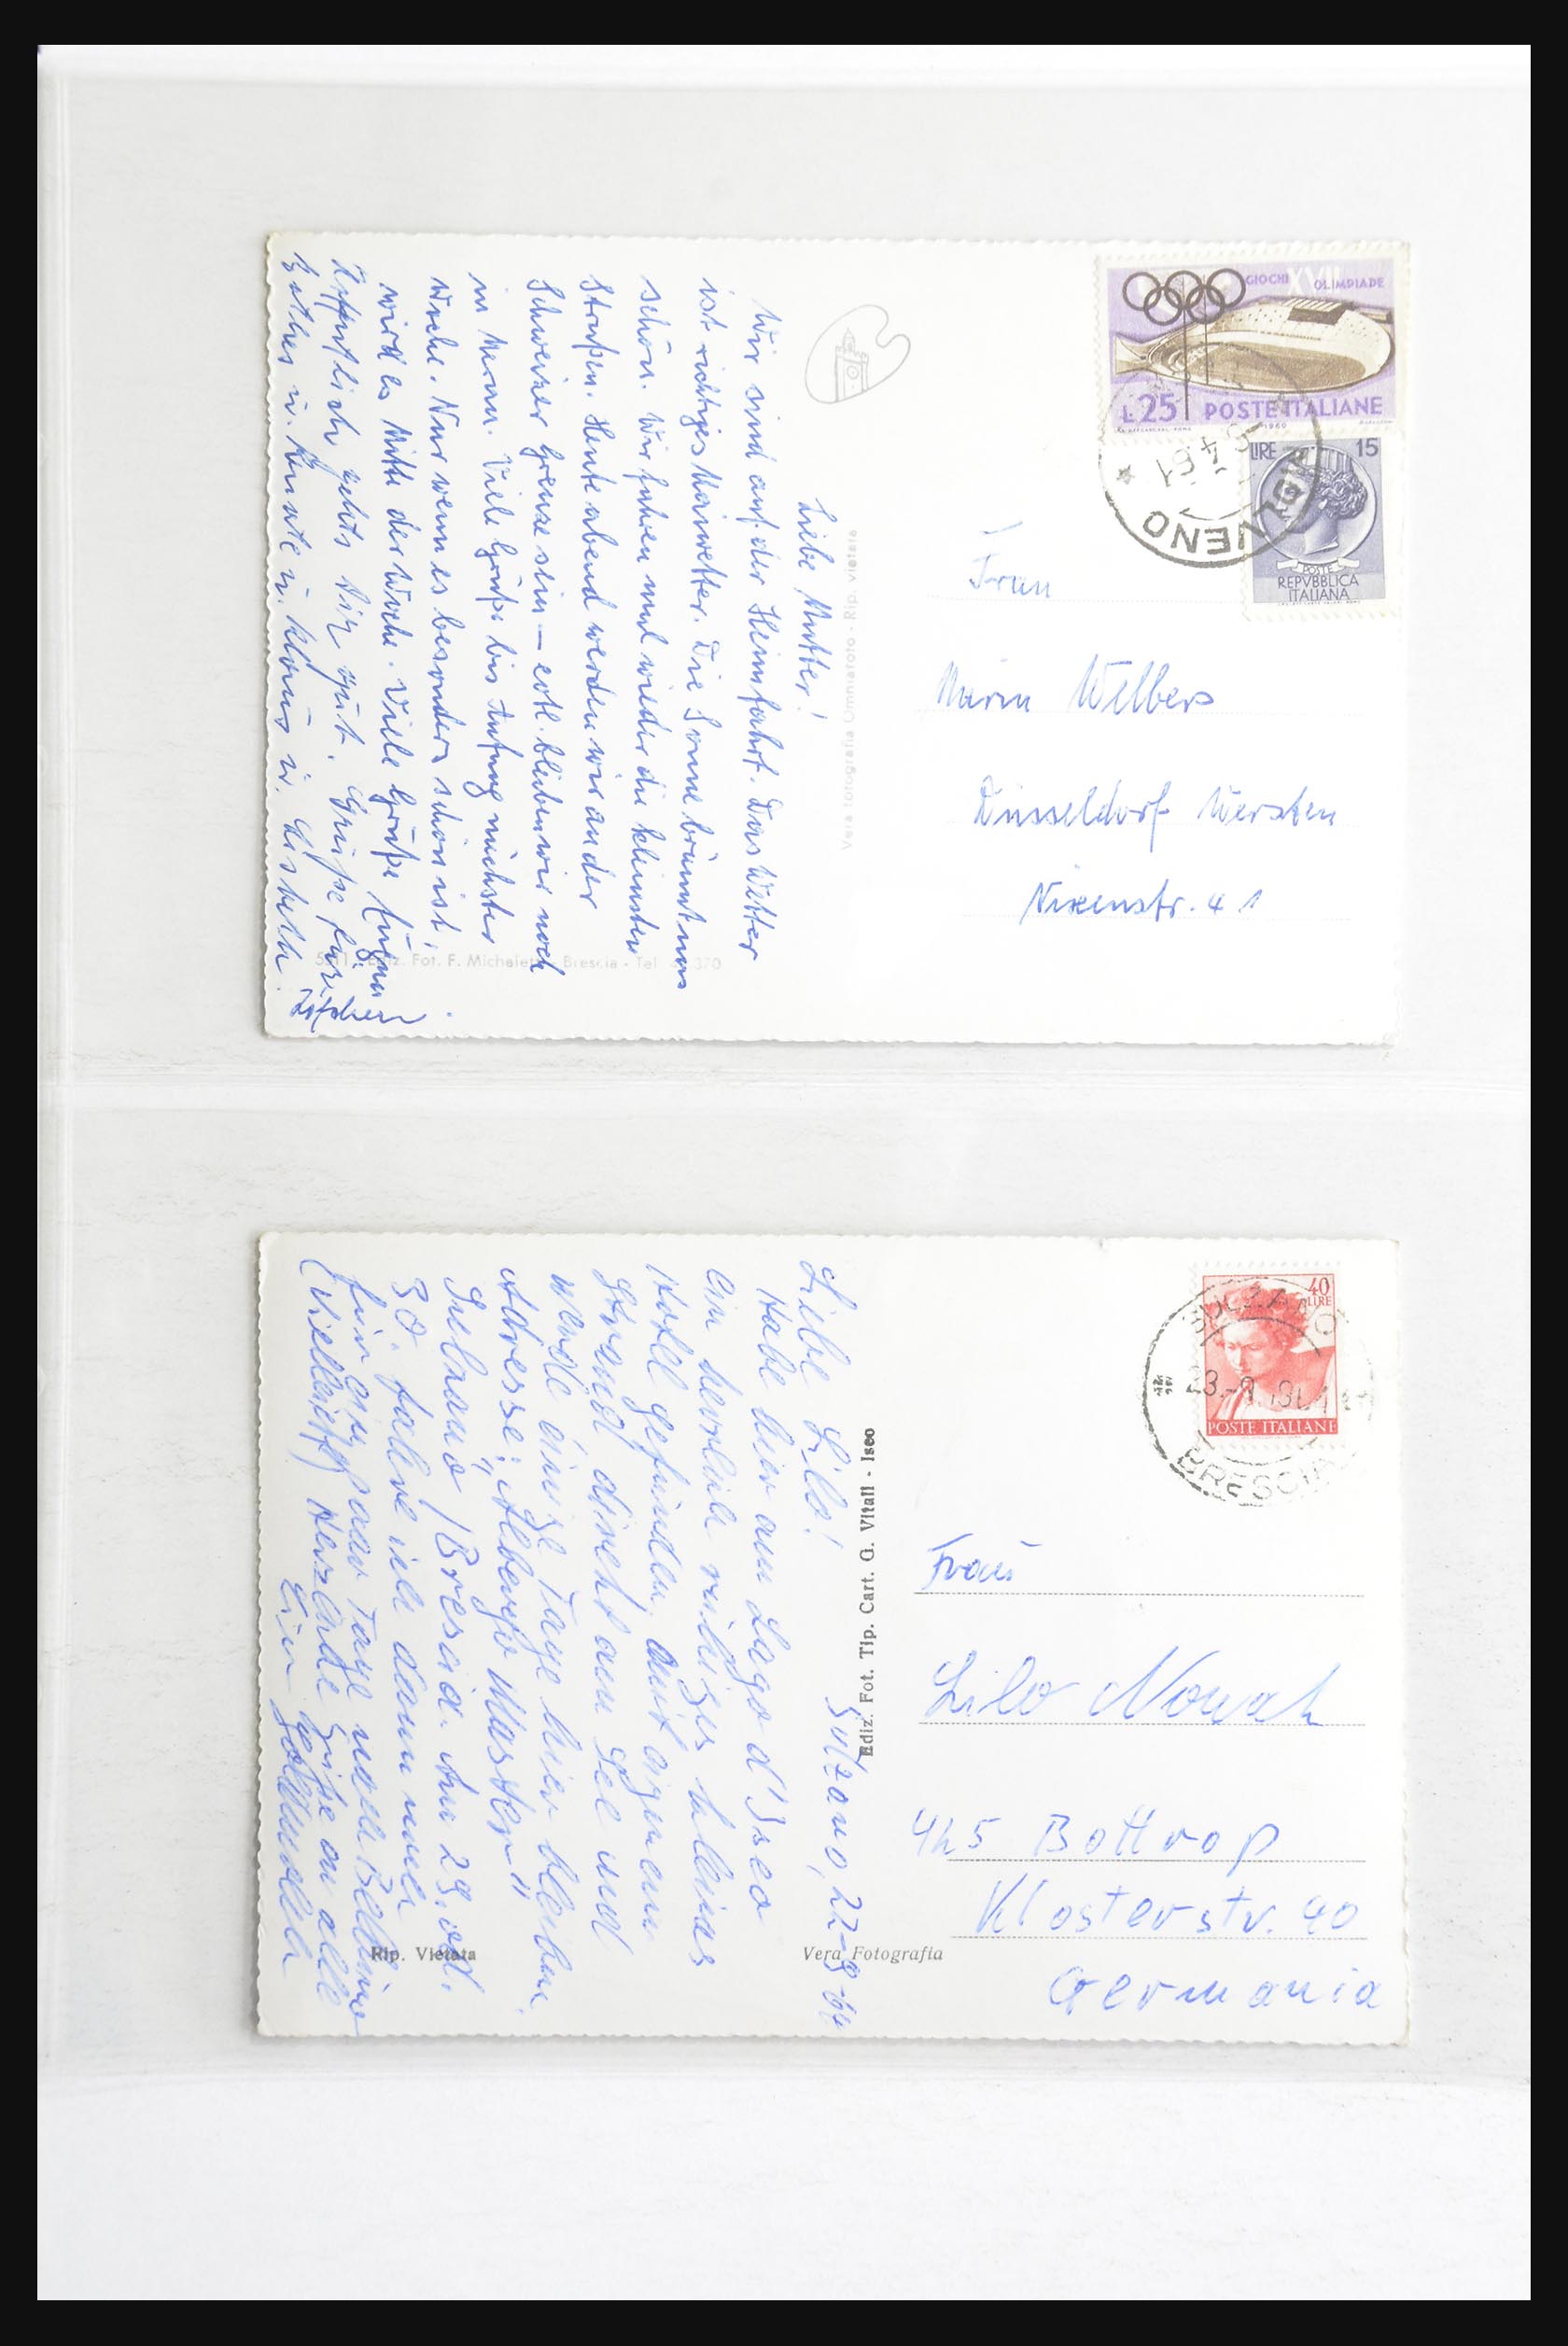 Liebe Mutter!
Wir sind auf der Heimfahrt. Das Wetter
ist richtiges Maiwetter. Die Sonne bräunt uns
schön. Wir fahren mal wieder die kleinsten
Straßen. Heute abend werden wir an der
Schweizer Grenze sein – evtl. bleiben wir noch
in Meran. Viele Grüße bis Anfang nächster
Woche. Nur wenn es besonders schön ist,
wird es Mitte der Woche. Viele Grüße
Hoffentlich gehts Dir gut. Grüße
u. Lisbeth.
Vera fotografia Omniafoto - Rip. vietata
Ediz. Fot. F. Michele - Brescia - Tel. 370
GIOCHI XVII OLIMPIADE
L.25 POSTE ITALIANE
1960
LIRE 15
POSTE
REPVBBLICA
ITALIANA
4.61
Frau
Maria Welbers
Düsseldorf Wersten
Nixenstr. 41
Sulzano, 22-9-64
Liebe Lilo!
Habe hier am Lago d'Iseo
ein herrlich ruhiges kleines
Hotel gefunden, mit eigenem
Strand direkt am See und
werde einige Tage hier bleiben.
Adresse: Albergo
Sulzano / Brescia. Am 29. od.
30. fahre ich dann noch
für ein paar Tage nach
Vielleicht Herzliche Grüße an alle
Ediz. Fot. Tip. Cart. G. Vitali - Iseo
Rip. Vietata
Vera Fotografia
40
LIRE
POSTE ITALIANE
SULZANO
23.-9.
BRESCIA
Frau
Lilo Nowak
425 Bottrop
Klosterstr. 40
Germania